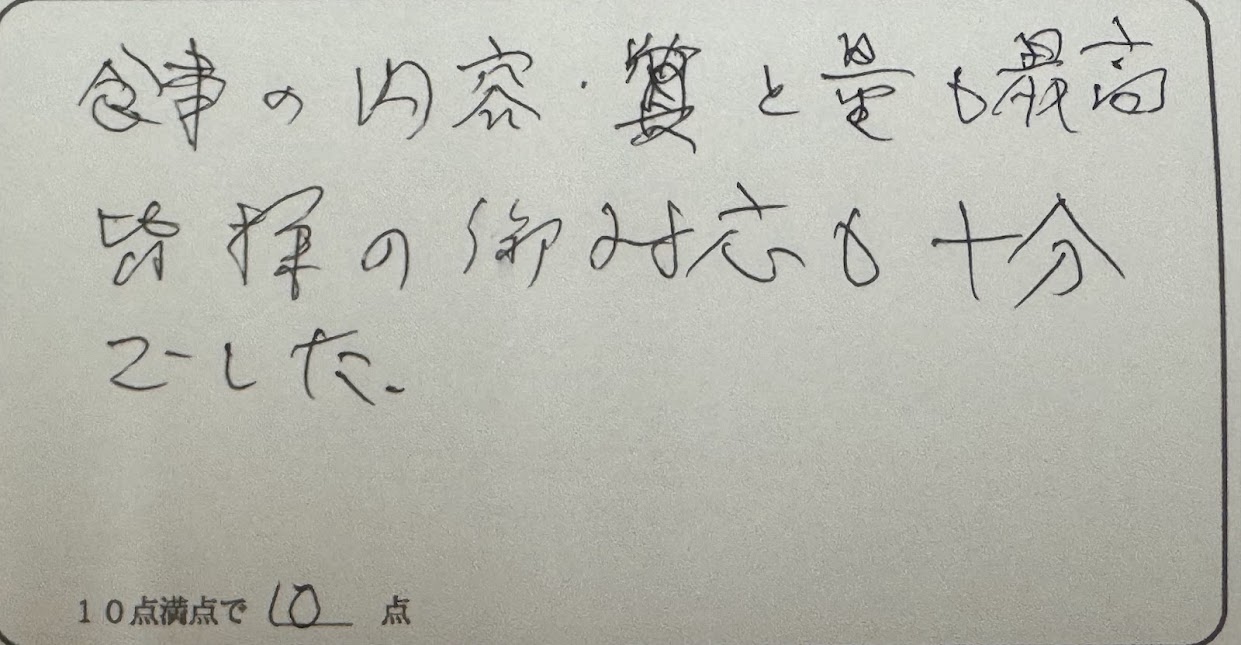 食事の内容・質と量も最高
皆様の御対応も十分
でした。
10点満点で 10 点